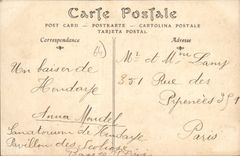 Carte Postale
POST CARD — POSTKARTE — CARTOLINA POSTALE
TARJETA POSTAL
Correspondance
Adresse
Un baiser de
Hendaye
Anna Mondel
Sanatorium de Hendaye
Pavillon des Ecoliers
Mr et Mme Lamy
351 Rue des
Pyrénées
Paris